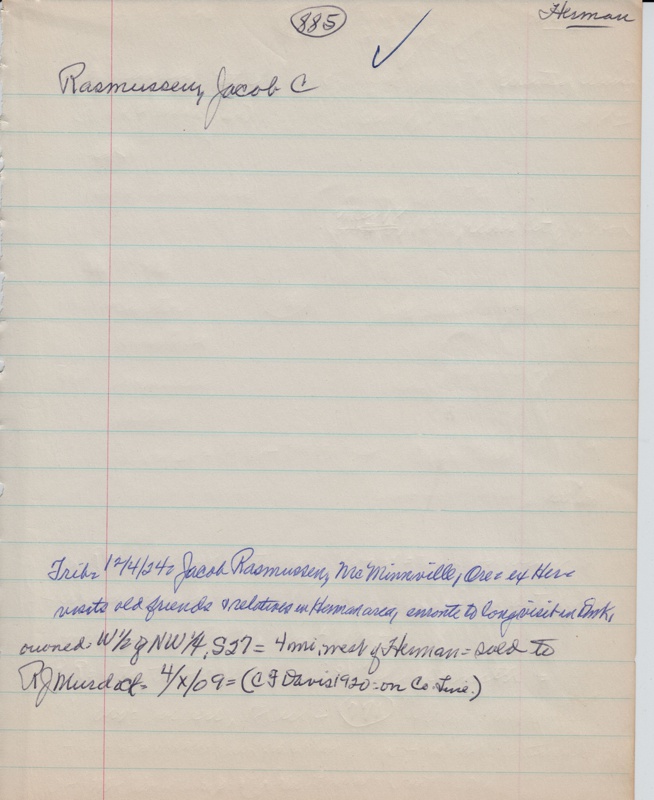 885
Herman
Rasmussen, Jacob C
Trib= 12/4/24= Jacob Rasmussen, McMinnville, Ore= ex Her=
visits old friends & relatives in Herman area, enroute to long visit in Dmk,
owned= W 1/2 of NW 1/4, S27= 4 mi, west of Herman= sold to
RJ Murdock= 4/x/09= (C F Davis 1920=on Co. Line.)